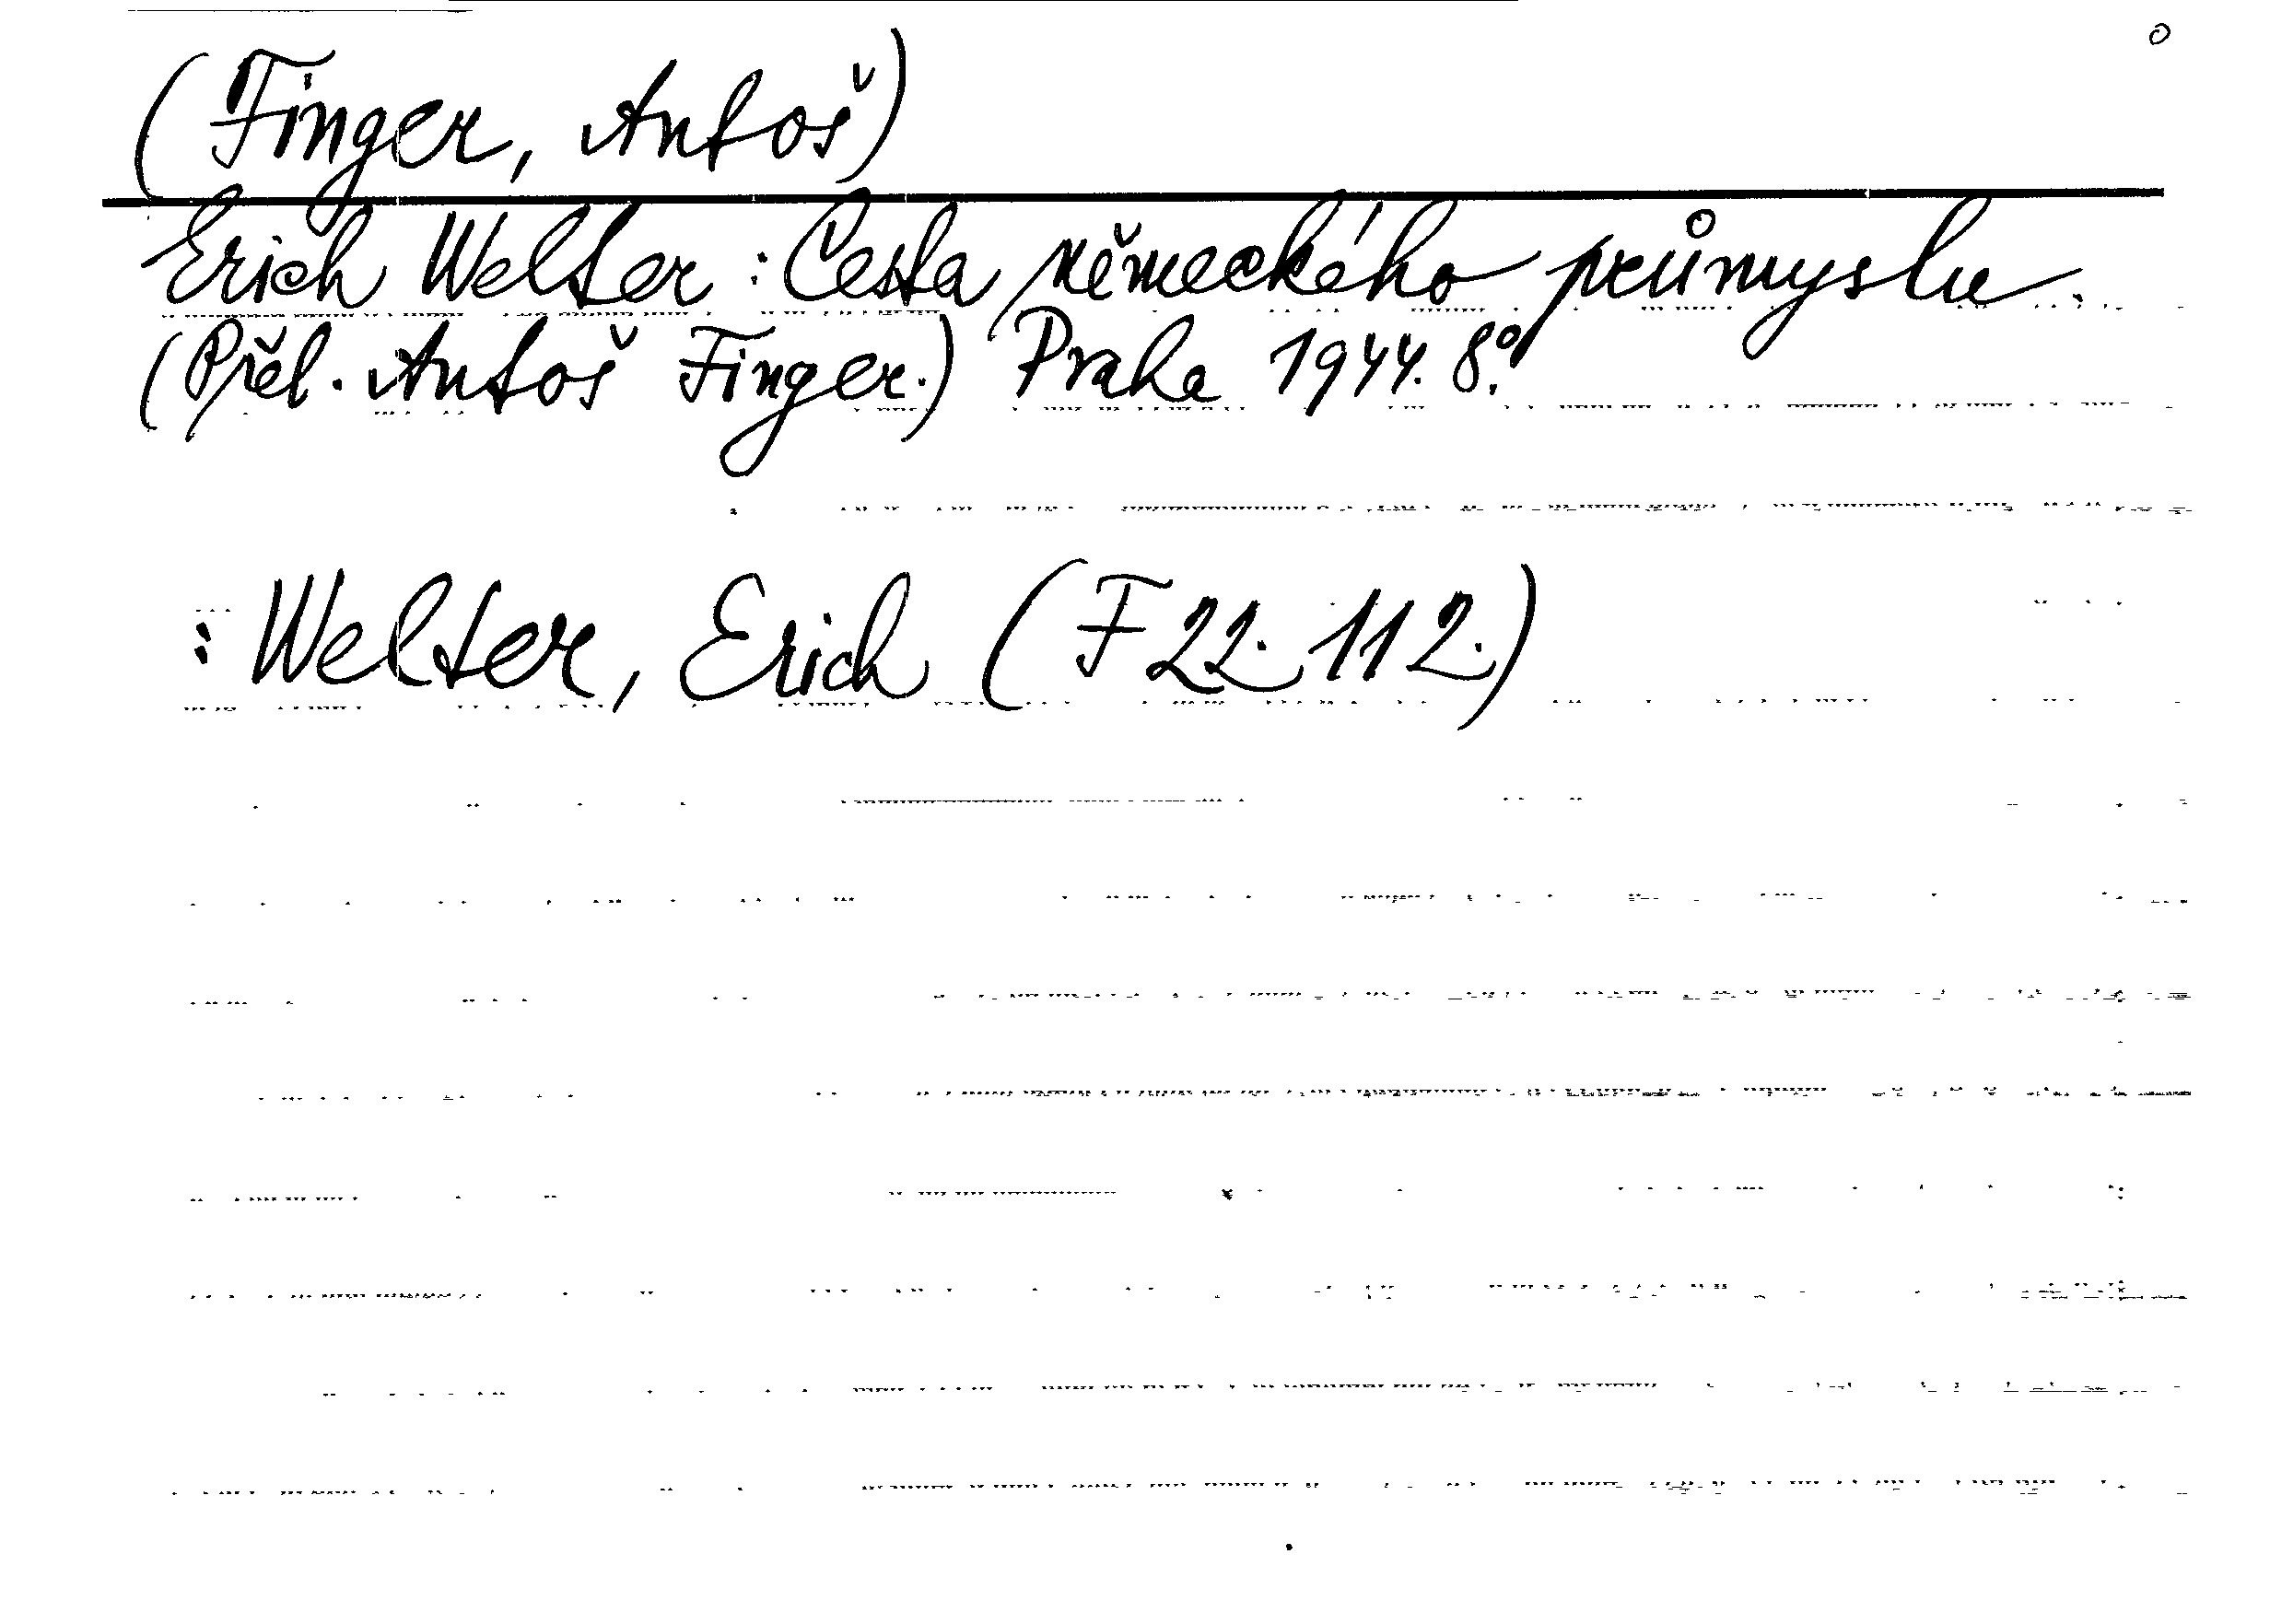 (Finger, Antoš)
Erich Welter: Cesta německého průmyslu.
(Přel. Antoš Finger.) Praha 1944. 8°.
: Welter, Erich (F 22. 112.)